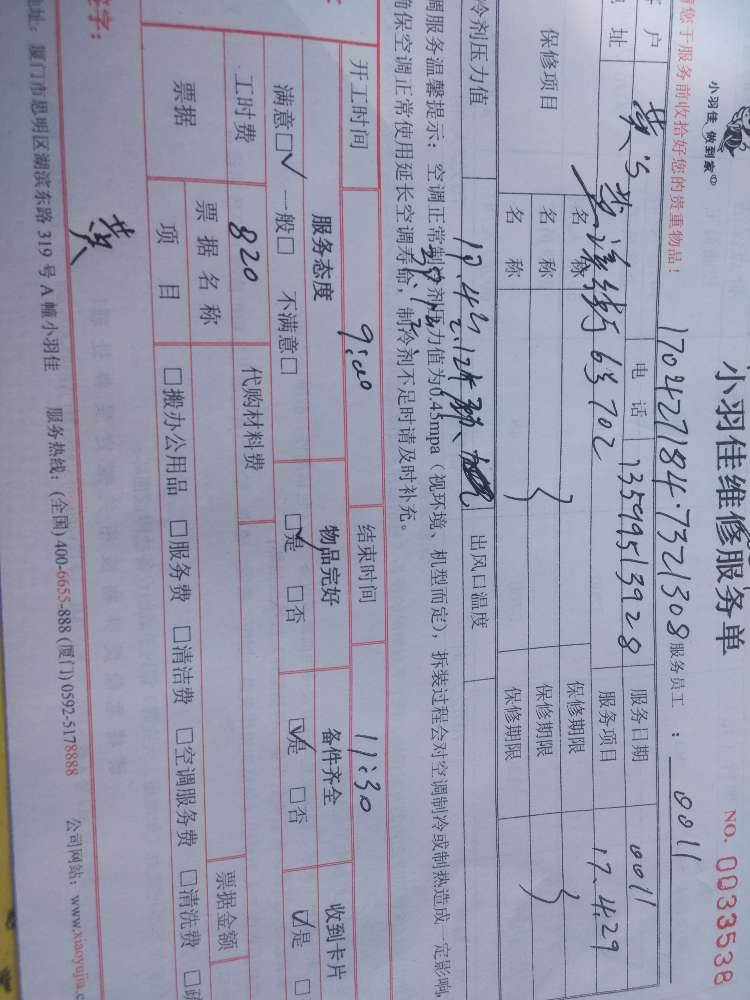 小羽佳 做到家
小羽佳维修服务单
NO. 0033538
您于服务前收拾好您的贵重物品！
1704271184.7321308
服务员工：0011
户
电 话
13599513928
服务日期
0011
址
6号702
服务项目
17.4.29
保修项目
名 称
保修期限
名 称
保修期限
名 称
保修期限
冷剂压力值
出风口温度
调服务温馨提示：空调正常制冷剂压力值为0.45mpa（视环境、机型而定），拆装过程会对空调制冷或制热造成一定影响，
确保空调正常使用延长空调寿命，制冷剂不足时请及时补充。
开工时间
9:00
结束时间
11:30
服务态度
物品完好
备件齐全
收到卡片
满意☑ 一般□ 不满意□
☑是 □否
☑是 □否
☑是 □
工时费
820
代购材料费
票据
票 据 名 称
票据金额
项 目
□搬办公用品 □服务费 □清洁费 □空调服务费 □清洗费 □
签字：
黄
地址：厦门市思明区湖滨东路 319 号 A 幢小羽佳 服务热线：(全国) 400-6655-888 (厦门) 0592-5178888 公司网站：www.xiaoyujia.c